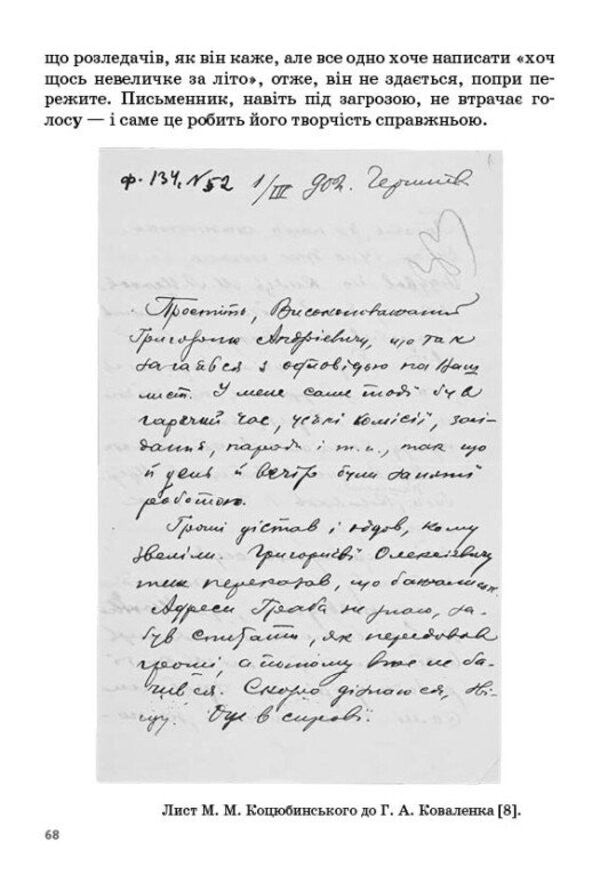 що розледачів, як він каже, але все одно хоче написати «хоч
щось невеличке за літо», отже, він не здається, попри пе-
режите. Письменник, навіть під загрозою, не втрачає го-
лосу — і саме це робить його творчість справжньою.
ф. 134, №52 1/III 902. Чернигів
Простіть, Високоповажаний
Григорию Андрієвичу, що так
загаявся з одповіддю на Ваш
лист. У мене саме тоді був
гарячий час, усякі комісії, засі-
дання, наради і т. и., так що
й день й вечір були заняті
роботою.
Гроші дістав і оддав, кому
звеліли. Григориєві Олексієвичу
теж переказав, що бажали.
Адреси Граба не знаю, за-
був спитати, як передавав
гроші, а потому вже не ба-
чився. Скоро дізнаюся, на-
пишу.
Лист М. М. Коцюбинського до Г. А. Коваленка [8].
68